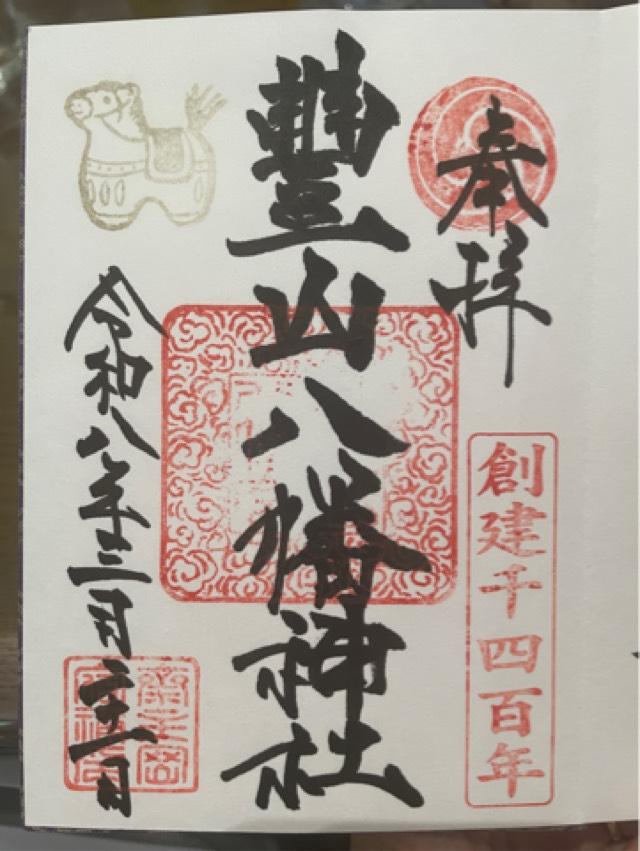 奉拝
創建千四百年
豐山八幡神社
令和八年三月二十一日